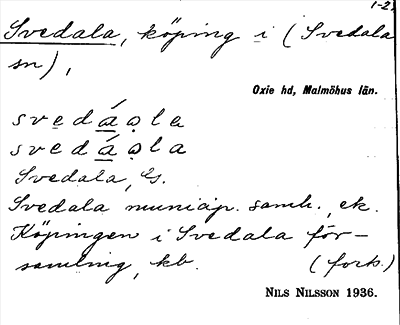 1-2
Svedala, köping i (Svedala
sn),
Oxie hd, Malmöhus län.
svedáọla
svedáọla
Svedala,
Svedala municip. samh., ek.
Köpingen i Svedala för-
samling, kb. (forts.)
NILS NILSSON 1936.